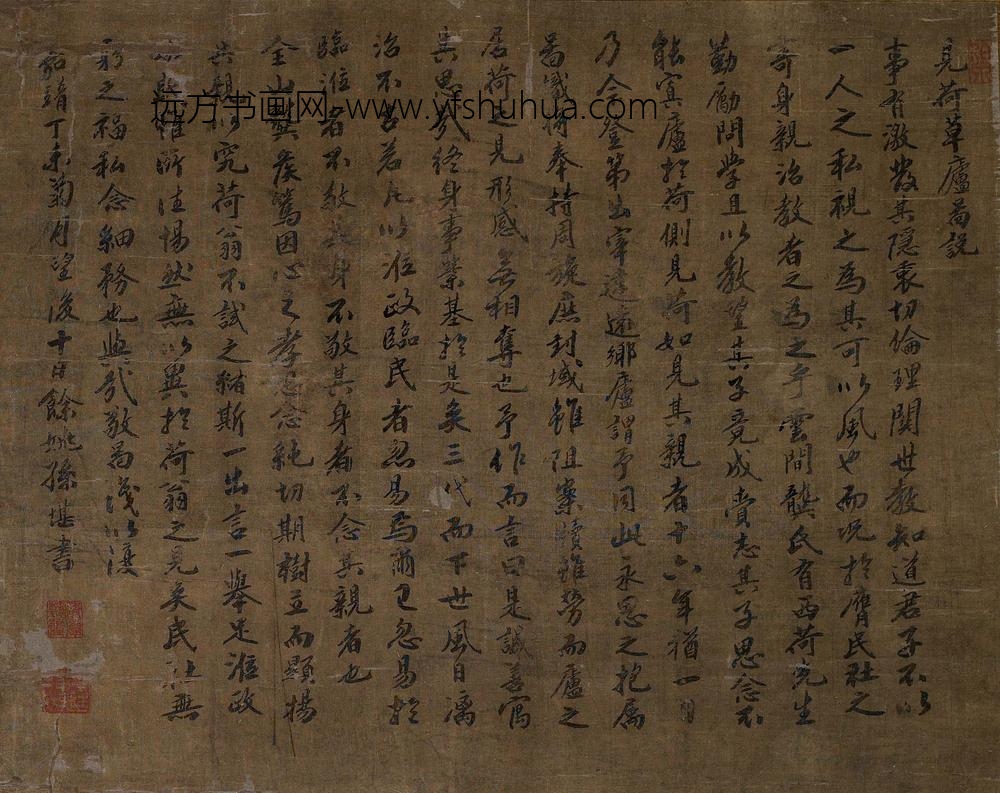 見荷草廬圖說
事有激發其隱衷切倫理關世教知道君子不以
一人之私視之為其可以風也而況於膺民社之
寄身親治教者之為之乎雲間龔氏有西荷先生
勤勵問學且以教望其子竟成賫志其子思念不
能寘廬於荷側見荷如見其親者廿六年猶一日
乃今登第出宰遠違鄉廬謂予同此永思之抱屬
圖緘揚奉持周旋庶封域雖阻案牘雖勞而廬之
居荷之見形感無相奪也予作而言曰是誠善寓
其思哉終身事業基於是矣三代而下世風日漓
治不古若凡以涖政臨民者忽易焉爾已忽易於
臨涖者不敬其身不敬其身者不念其親者也
全山龔侯篤因心之孝思念純切期樹立而顯揚
其親以究荷翁不試之緒斯一出言一舉足涖政
臨 所 惕然無以異於荷翁之見矣民社無
之福私念細務也與哉敬圖淺以
嘉靖丁未菊月望後十日餘姚孫堪書
远方书画网-www.yfshuhua.com